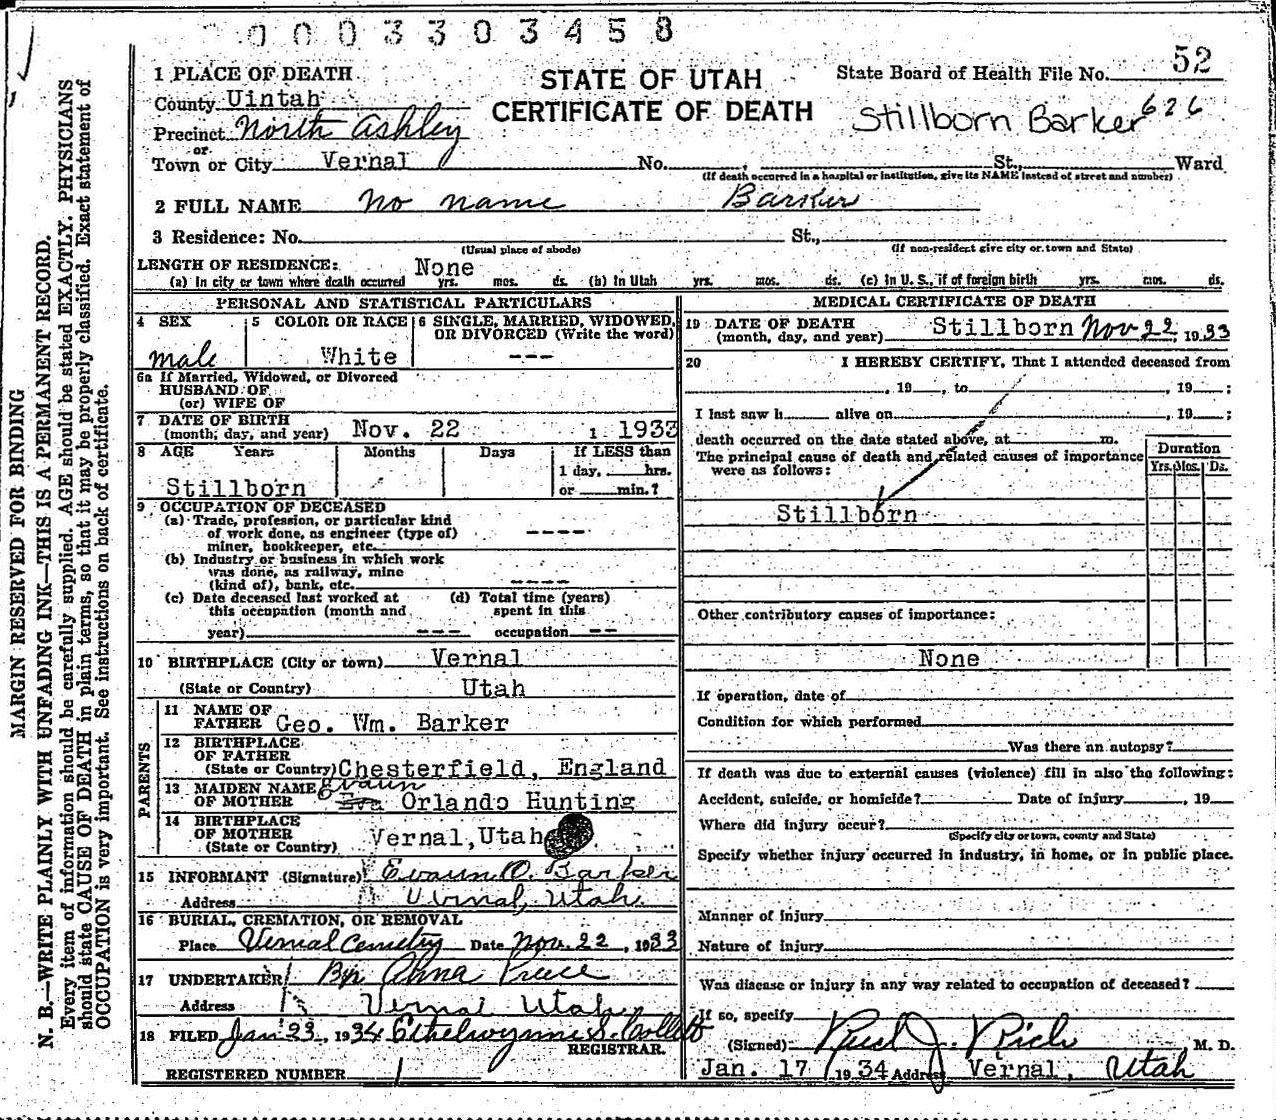 0003303458
MARGIN RESERVED FOR BINDING
N. B.—WRITE PLAINLY WITH UNFADING INK—THIS IS A PERMANENT RECORD.
Every item of information should be carefully supplied. AGE should be stated EXACTLY. PHYSICIANS
should state CAUSE OF DEATH in plain terms, so that it may be properly classified. Exact statement of
OCCUPATION is very important. See instructions on back of certificate.
STATE OF UTAH
CERTIFICATE OF DEATH
State Board of Health File No. 52
Stillborn Barker 626
1 PLACE OF DEATH
County Uintah
Precinct North Ashley
or
Town or City Vernal No. , St., Ward
(If death occurred in a hospital or institution, give its NAME instead of street and number)
2 FULL NAME No name Barker
3 Residence: No. St.,
(Usual place of abode) (If non-resident give city or town and State)
LENGTH OF RESIDENCE: None
(a) In city or town where death occurred yrs. mos. ds. (b) In Utah yrs. mos. ds. (c) In U. S., if of foreign birth yrs. mos. ds.
PERSONAL AND STATISTICAL PARTICULARS
4 SEX
male
5 COLOR OR RACE
White
6 SINGLE, MARRIED, WIDOWED,
OR DIVORCED (Write the word)
---
6a If Married, Widowed, or Divorced
HUSBAND OF
(or) WIFE OF
7 DATE OF BIRTH
(month, day, and year) Nov. 22 1 1933
8 AGE Years Months Days If LESS than
1 day, hrs.
Stillborn or min.?
9 OCCUPATION OF DECEASED
(a) Trade, profession, or particular kind
of work done, as engineer (type of) ----
miner, bookkeeper, etc.
(b) Industry or business in which work
was done, as railway, mine
(kind of), bank, etc. ----
(c) Date deceased last worked at (d) Total time (years)
this occupation (month and spent in this
year) --- occupation --
10 BIRTHPLACE (City or town) Vernal
(State or Country) Utah
PARENTS
11 NAME OF
FATHER Geo. Wm. Barker
12 BIRTHPLACE
OF FATHER
(State or Country) Chesterfield, England
13 MAIDEN NAME Evaun
OF MOTHER Eva Orlando Hunting
14 BIRTHPLACE
OF MOTHER Vernal, Utah
(State or Country)
15 INFORMANT (Signature) Evaun O. Barker
Address Vernal, Utah
16 BURIAL, CREMATION, OR REMOVAL
Place Vernal Cemetry Date Nov. 22, 1933
17 UNDERTAKER By Preece
Address Vernal Utah
18 FILED Jan 23, 1934 Ethelwynne S. Collett
REGISTRAR.
REGISTERED NUMBER 1
MEDICAL CERTIFICATE OF DEATH
19 DATE OF DEATH
(month, day, and year) Stillborn Nov 22, 1933
20 I HEREBY CERTIFY, That I attended deceased from
, 19 , to , 19 ;
I last saw h alive on , 19 ;
death occurred on the date stated above, at m.
The principal cause of death and related causes of importance
were as follows:
Duration
Yrs. Mos. Ds.
Stillborn
Other contributory causes of importance:
None
If operation, date of
Condition for which performed
Was there an autopsy?
If death was due to external causes (violence) fill in also the following:
Accident, suicide, or homicide? Date of injury , 19
Where did injury occur?
(Specify city or town, county and State)
Specify whether injury occurred in industry, in home, or in public place.
Manner of injury
Nature of injury
Was disease or injury in any way related to occupation of deceased?
If so, specify
(Signed) J. Rich M. D.
Jan. 17 1934 Address Vernal, Utah